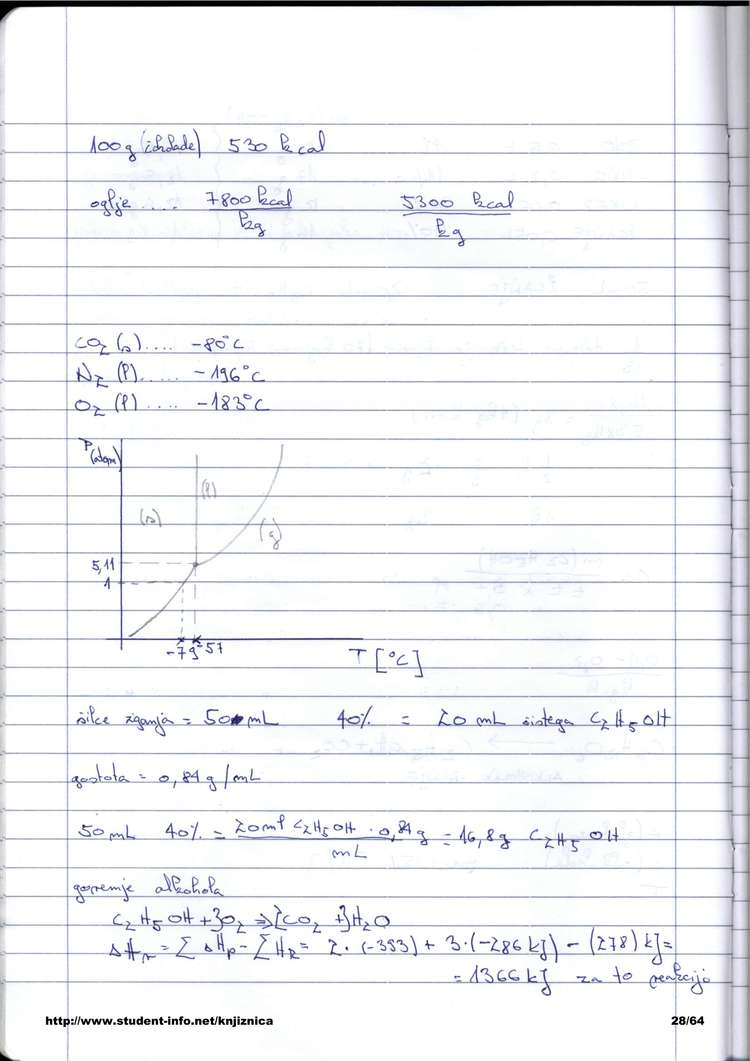 100g (čokolade) 530 kcal
oglje .... 7800 kcal/kg 5300 kcal/kg
CO2 (s) .... -80°C
N2 (l) ..... -196°C
O2 (l) .... -183°C
P (atm)
(s) (l) (g)
5,11
1
-79 -57
T [°C]
šilce žganja = 50 mL 40% = 20 mL čistega C2H5OH
gostota = 0,84 g/mL
50mL 40% = 20ml C2H5OH · 0,84 g / mL = 16,8g C2H5OH
gorenje alkohola
C2H5OH + 3O2 => 2CO2 + 3H2O
ΔHr = Σ ΔHp - Σ HR = 2 · (-393) + 3·(-286 kJ) - (278) kJ =
= 1366 kJ za to reakcijo
http://www.student-info.net/knjiznica 28/64